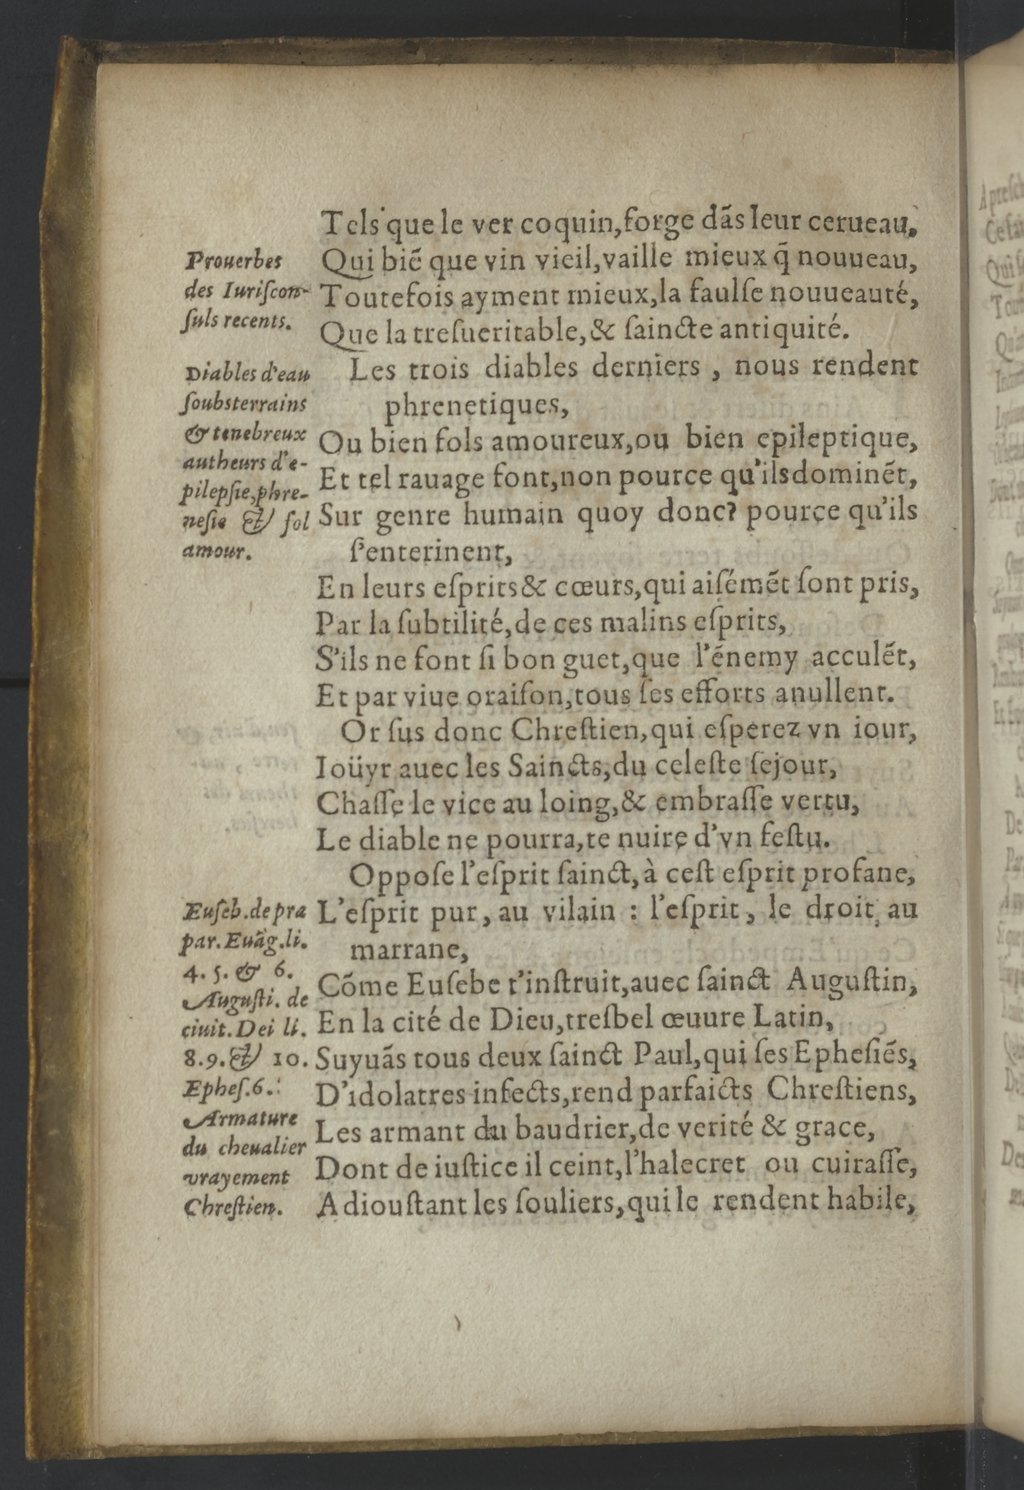 Tels que le ver coquin, forge dãs leur cerueau,
Qui biẽ que vin vieil, vaille mieux q̃ nouueau,
Toutefois ayment mieux, la faulſe nouueauté,
Que la treſueritable, & ſaincte antiquité.
Les trois diables derniers, nous rendent
phrenetiques,
Ou bien fols amoureux, ou bien epileptique,
Et tel rauage font, non pource qu'ils dominẽt,
Sur genre humain quoy donc? pource qu'ils
ſ'enterinent,
En leurs eſprits & cœurs, qui aiſémẽt ſont pris,
Par la ſubtilité, de ces malins eſprits,
S'ils ne font ſi bon guet, que l'énemy acculẽt,
Et par viue oraiſon, tous ſes efforts anullent.
Or ſus donc Chreſtien, qui eſperez vn iour,
Ioüyr auec les Saincts, du celeſte ſejour,
Chaſſe le vice au loing, & embraſſe vertu,
Le diable ne pourra, te nuire d'vn feſtu.
Oppoſe l'eſprit ſainct, à ceſt eſprit profane,
L'eſprit pur, au vilain : l'eſprit, le droit, au
marrane,
Cõme Euſebe t'inſtruit, auec ſainct Auguſtin,
En la cité de Dieu, treſbel œuure Latin,
Suyuãs tous deux ſainct Paul, qui ſes Epheſiẽs,
D'idolatres infects, rend parfaicts Chreſtiens,
Les armant du baudrier, de verité & grace,
Dont de iuſtice il ceint, l'halecret ou cuiraſſe,
Adiouſtant les ſouliers, qui le rendent habile,
Prouerbes
des Iuriſcon-
ſuls recents.
Diables d'eau
ſoubsterrains
& tenebreux
autheurs d'e-
pilepſie, phre-
neſie & fol
amour.
Euſeb. de pra
par. Euãg. li.
4. 5. & 6.
Auguſti. de
ciuit. Dei li.
8. 9. & 10.
Epheſ. 6.
Armature
du cheualier
vrayement
Chreſtien.